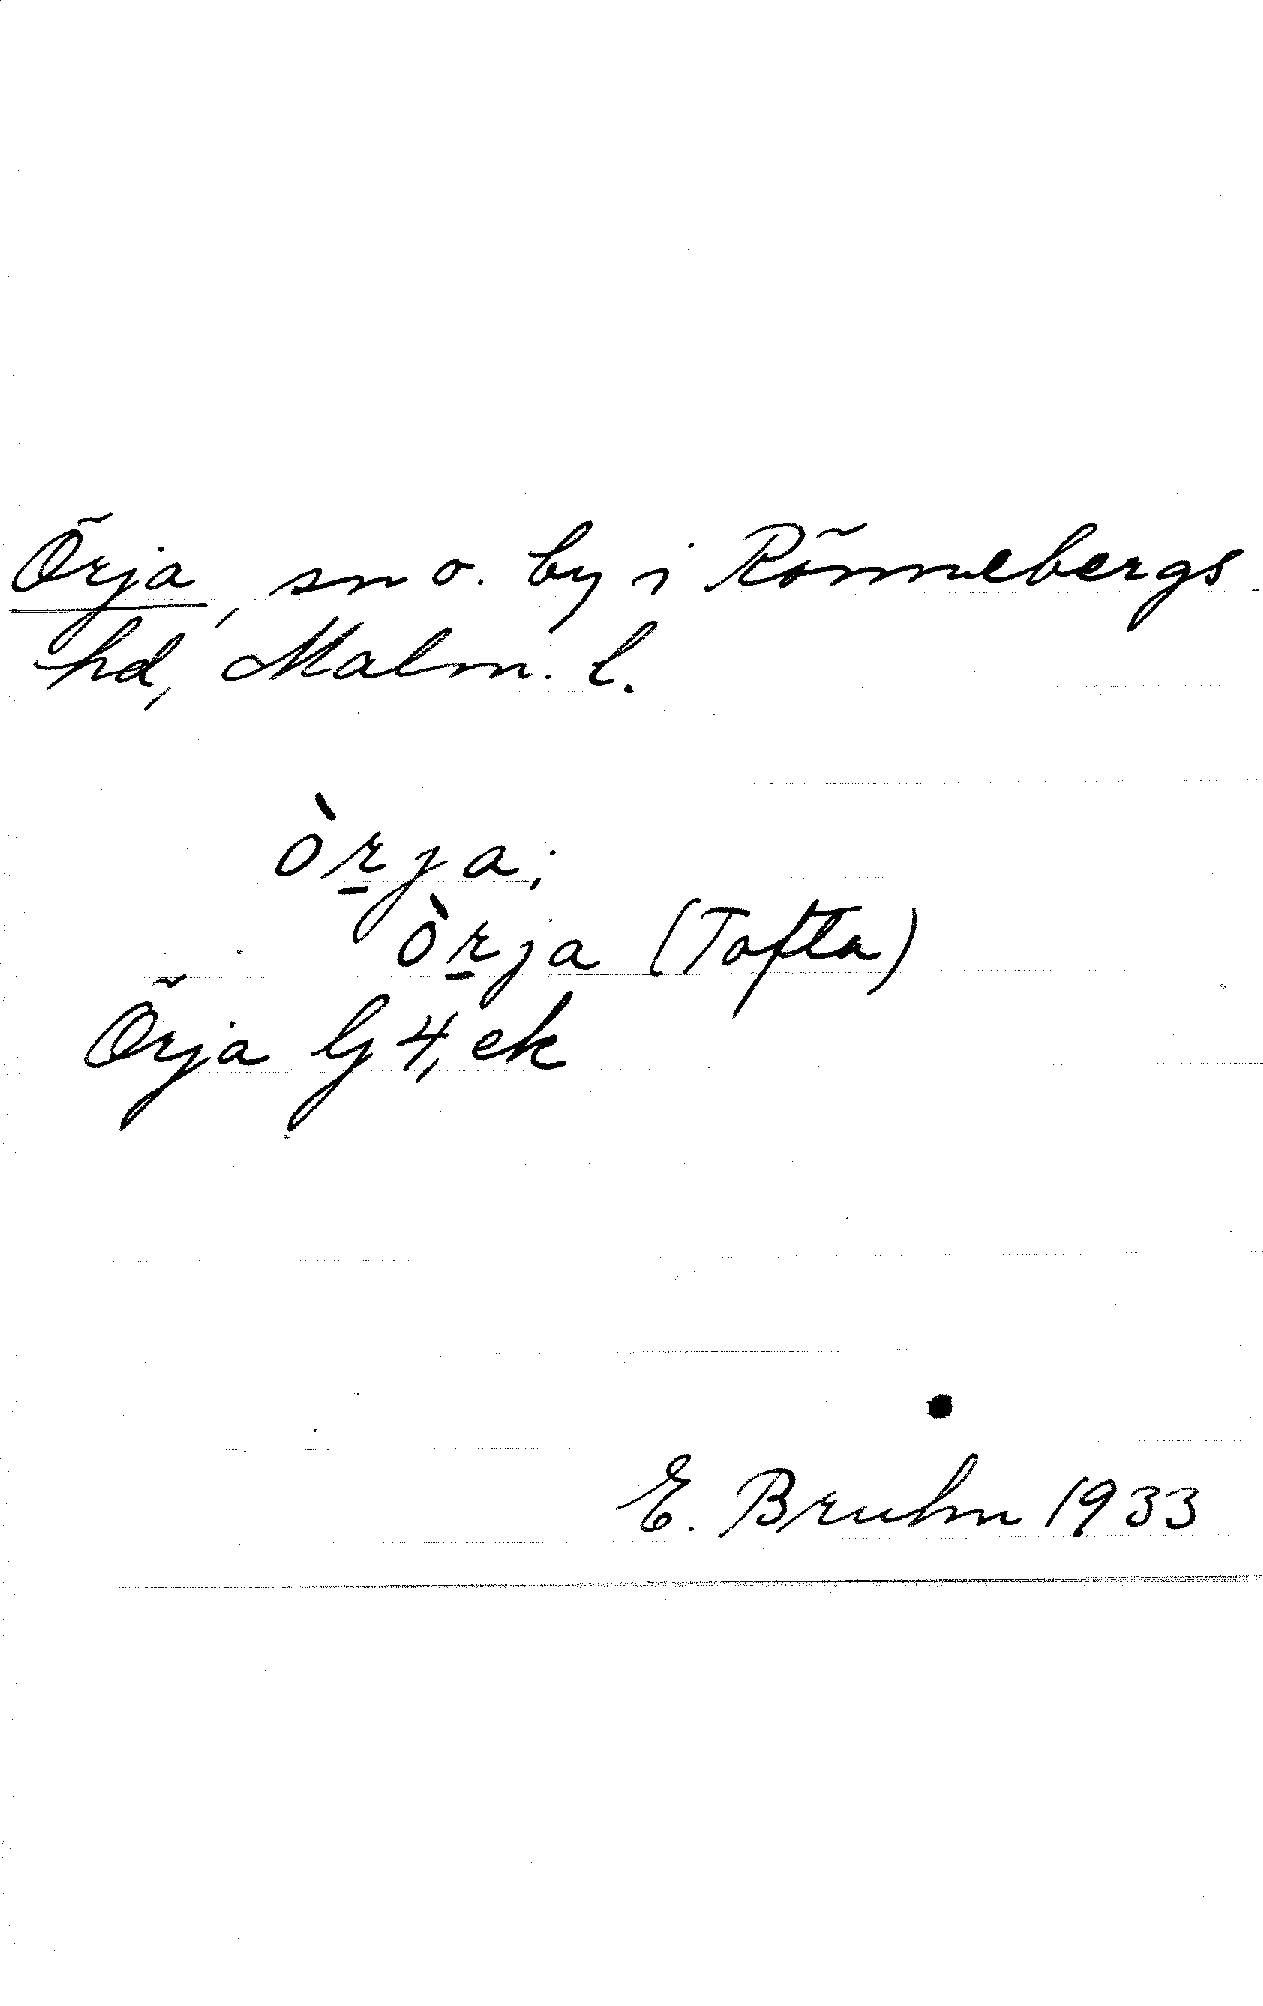 Örja, sn o. by i Rönnebergs
hd, Malm. l.
òr̲ja;
òr̲ja (Tofta)
Örja G 4, ek
E. Bruhn 1933